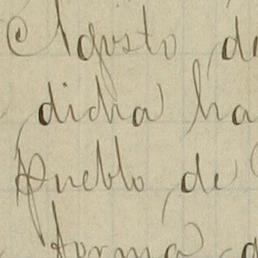 Agosto d
dicha ha
Pueblo de
forma